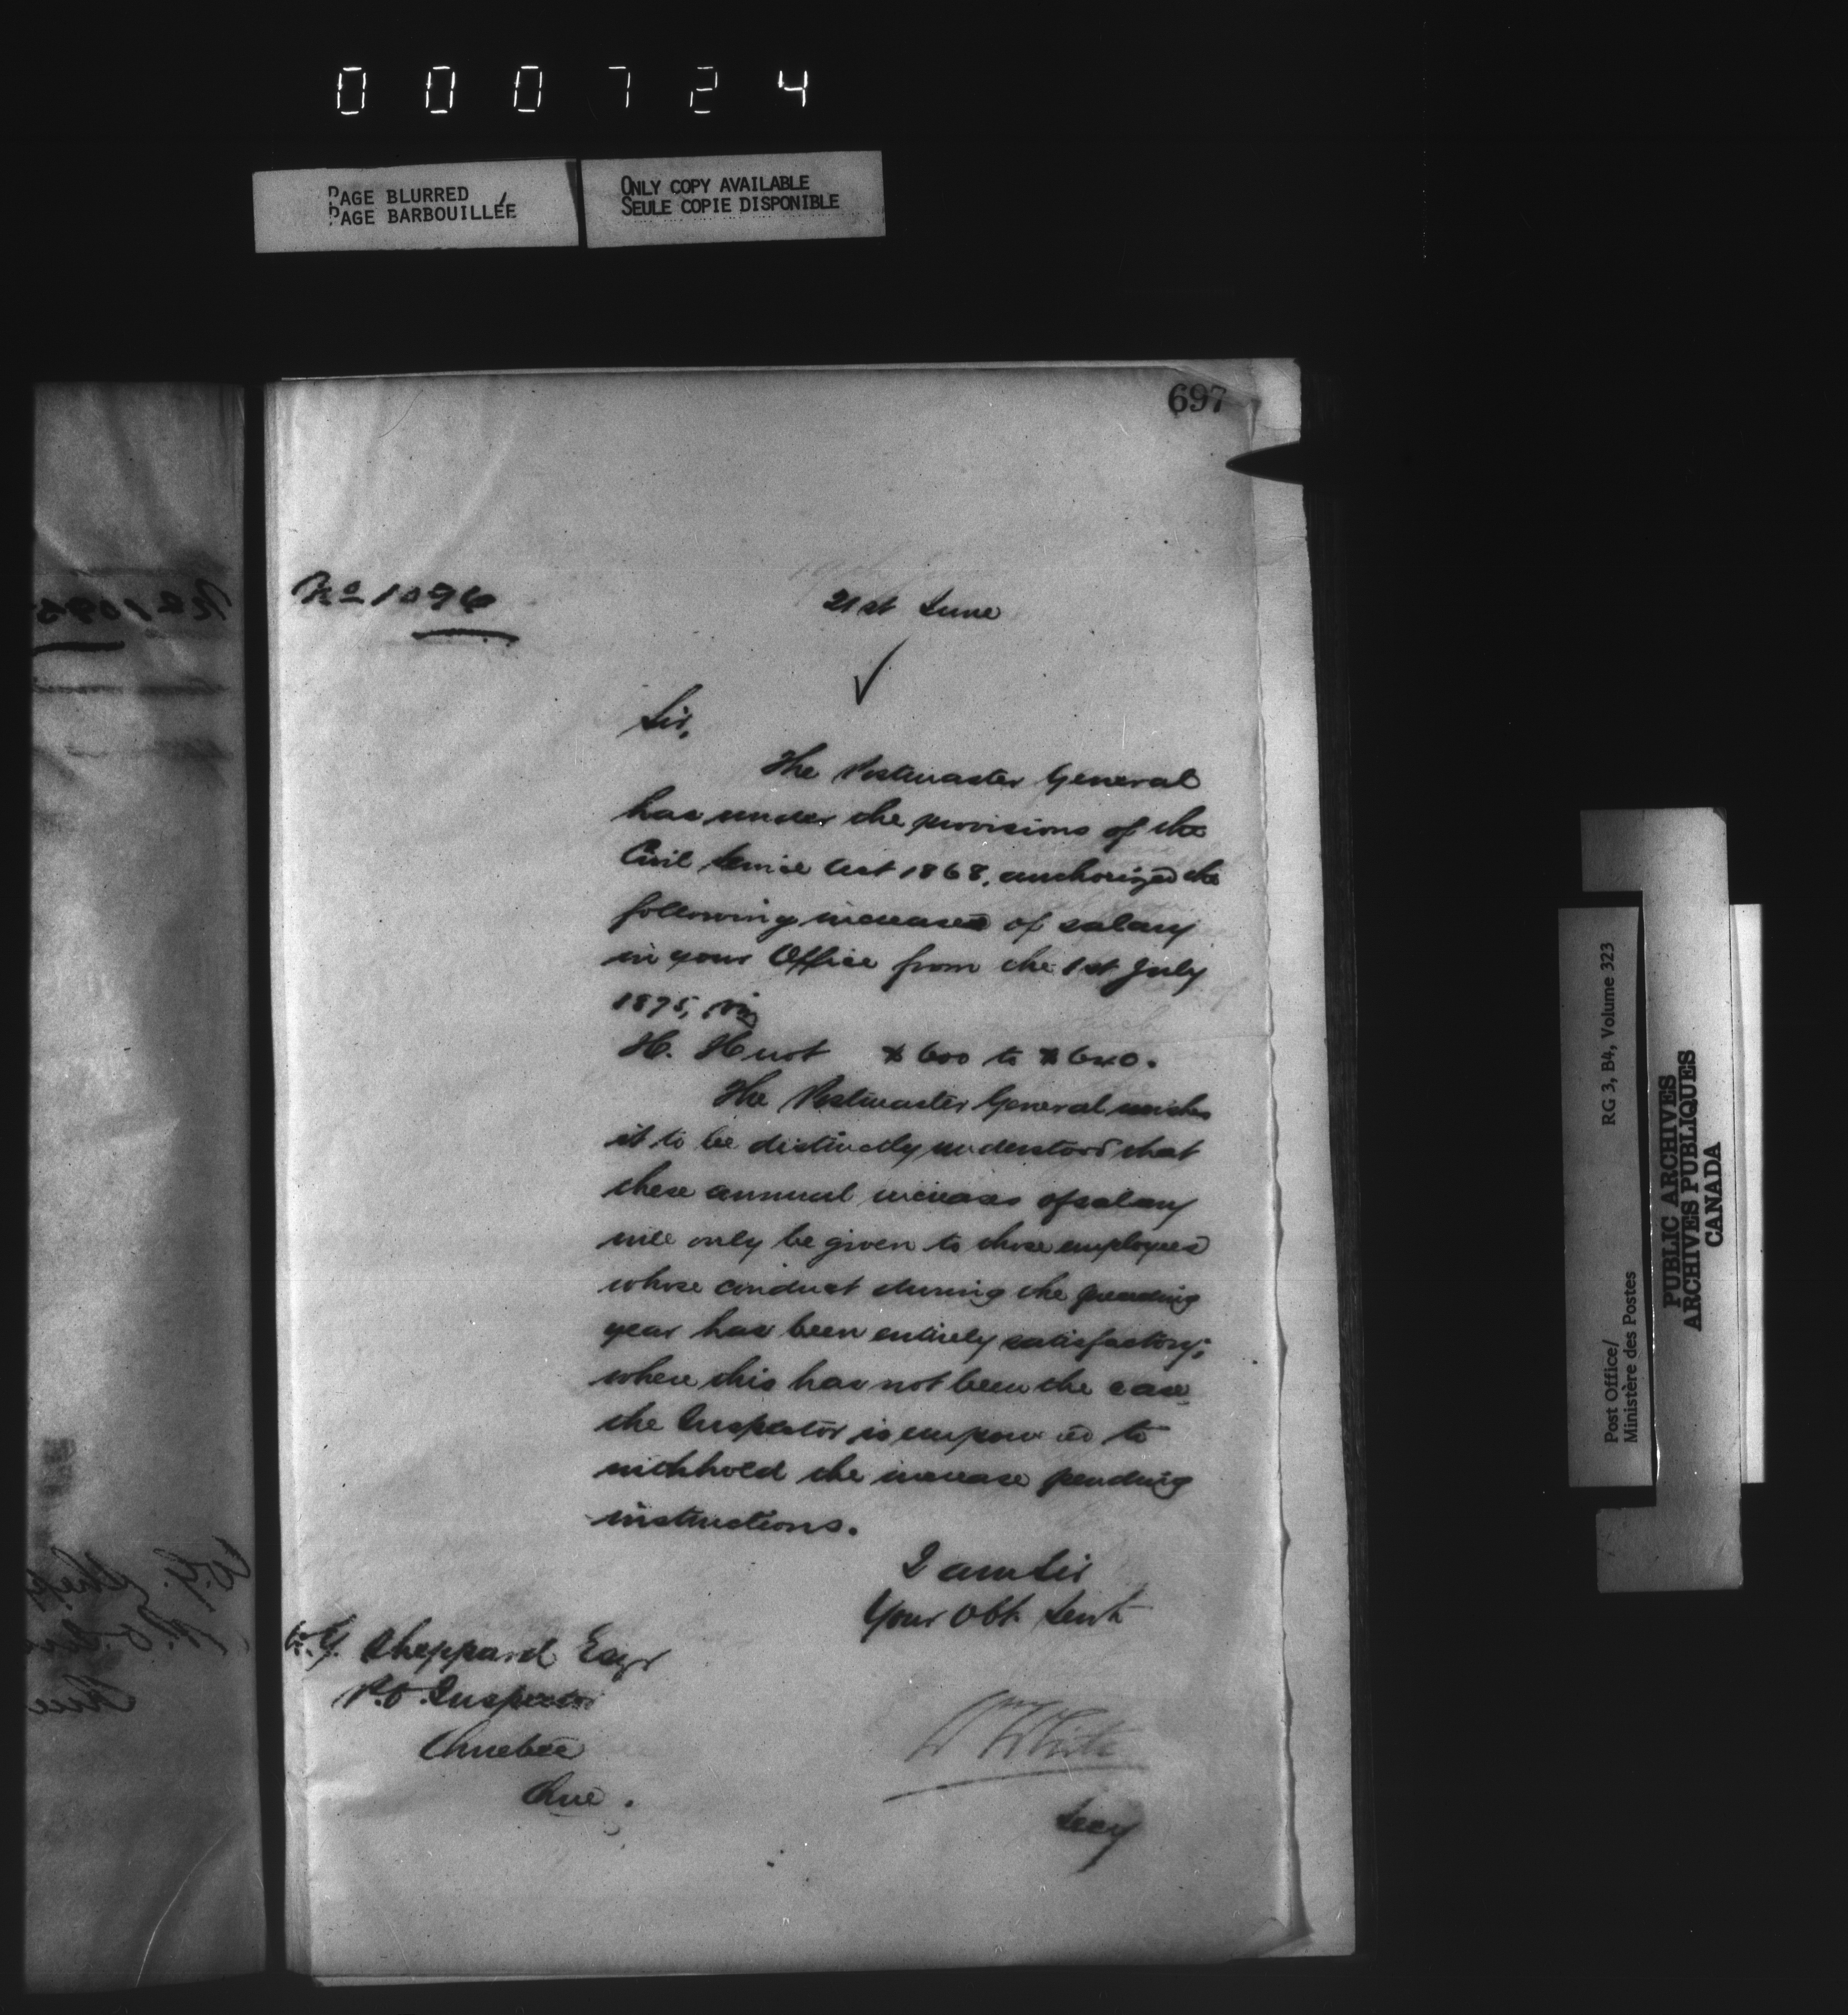 000724
PAGE BLURRED
PAGE BARBOUILLÉE
ONLY COPY AVAILABLE
SEULE COPIE DISPONIBLE
697
No 1096
21st June
Sir,
The Postmaster General
has under the provisions of the
Civil Service Act 1868, authorized the
following increases of salary
in your Office from the 1st July
1875, viz
H. Huot $600 to $640.
The Postmaster General wishes
it to be distinctly understood that
these annual increases of salary
will only be given to those employees
whose conduct during the preceding
year has been entirely satisfactory;
where this has not been the case
the Inspector is empowered to
withhold the increase pending
instructions.
I am Sir
Your Obt Servt
W. G. Sheppard Esqr
P.O. Inspector
Quebec
Que.
Wm White
Secy
RG 3, B4, Volume 323
Post Office/
Ministère des Postes
PUBLIC ARCHIVES
ARCHIVES PUBLIQUES
CANADA